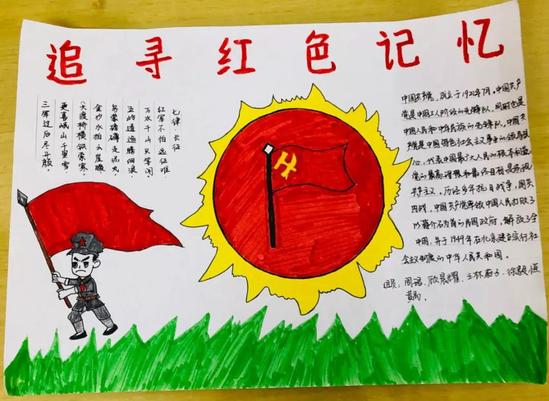 追寻红色记忆
七律·长征
红军不怕远征难
万水千山只等闲
五岭逶迤腾细浪
乌蒙磅礴走泥丸
金沙水拍云崖暖
大渡桥横铁索寒
更喜岷山千里雪
三军过后尽开颜。
中国共产党,成立于1921年7月,中国共产
党是中国工人阶级的先锋队,同时也是
中国人民和中华民族的先锋队,中国共
产党是中国特色社会主义事业的领导核
心,代表中国最广大人民的根本利益
党的最高理想和最终目标是实现
共产主义。历经多年抗日战争,国共
内战,中国共产党率领中国人民打败了
以蒋介石为首的民国政府,解放了全
中国,并于1949年在北京建立实行社
会主义制度的中华人民共和国。